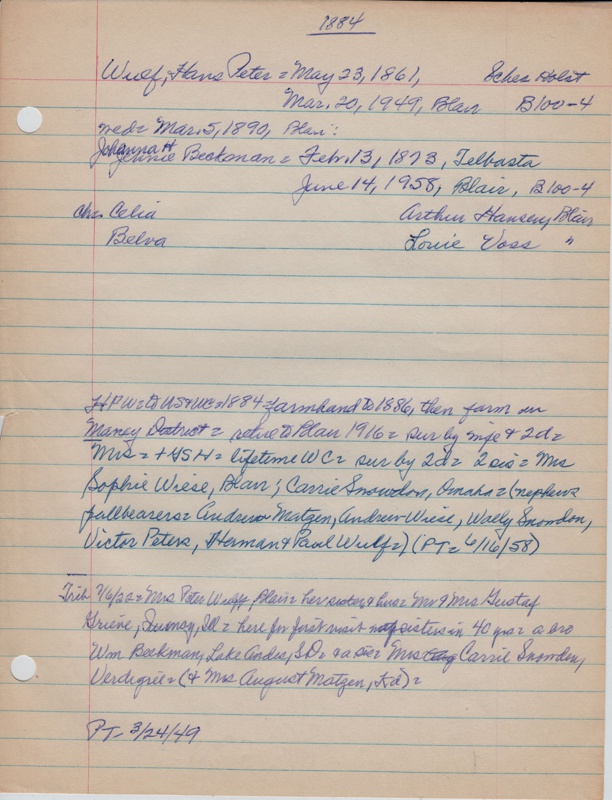 1884
Wulf, Hans Peter = May 23, 1861, Schles Holst
Mar. 20, 1949, Blair B100-4
med = Mar. 5, 1890, Blair:
Johanna H
Jennie Beckman = Feb. 13, 1873, Telbasta
June 14, 1958, Blair, B100-4
chr Celia Arthur Hansen, Blair
Belva Louie Voss "
HPW = to US & WC = 1884 = farmhand to 1886, then farm in
Maney District = retire to Blair 1916 = sur by wife & 2d =
Mrs = = lifetime WC = sur by 2d = 2 sis = Mrs
Sophie Wiese, Blair; Carrie Snowdon, Omaha = (nephews
pallbearers = Andrew Matzen, Andrew Wiese, Wally Snowdon,
Victor Peters, Herman & Paul Wulf =) (PT = 6/16/58)
Trib = Mrs Peter Wulff, Blair = her sister & hus = Mr & Mrs Gustaf
Grieve, SD = here for first visit sisters in 40 yrs = a bro
Wm Beckman, Lake Andes, SD = & a sis = Mrs Carrie Snowdon,
Verdigree = (& Mrs August Matzen, Kd) =
PT- 3/24/49